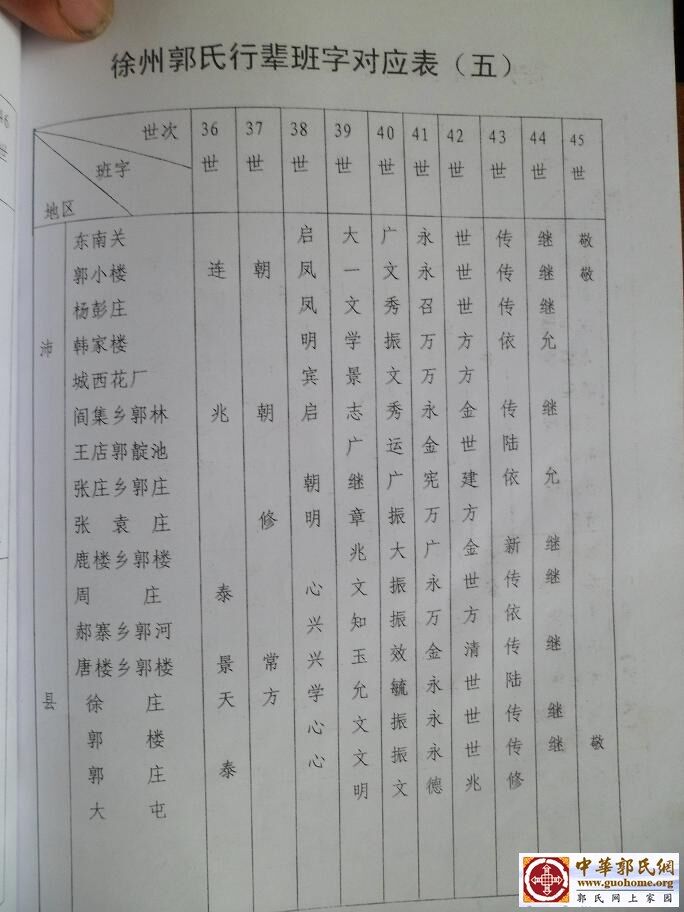 徐州郭氏行辈班字对应表（五）
世次 36世 37世 38世 39世 40世 41世 42世 43世 44世 45世
班字
地区
沛县
东南关 启 大 广 永 世 传 继 敬
郭小楼 连 朝 凤 一 文 永 世 传 继 敬
杨彭庄 凤 文 秀 召 世 传 继
韩家楼 明 学 振 万 方 依 允
城西花厂 宾 景 文 万 方
阎集乡郭林 兆 朝 启 志 秀 永 金 传 继
王店郭靛池 广 运 金 世 陆
张庄乡郭庄 朝 继 广 宪 建 依 允
张袁庄 修 明 章 振 万 方
鹿楼乡郭楼 兆 大 广 金 新 继
周庄 泰 心 文 振 永 世 传 继
郝寨乡郭河 兴 知 振 万 方 依
唐楼乡郭楼 景 常 兴 玉 效 金 清 传 继
徐庄 天 方 学 允 毓 永 世 陆
郭楼 心 文 振 永 世 传 继
郭庄 泰 心 文 振 永 世 传 继 敬
大屯 明 文 德 兆 修
中華郭氏網
www.guohome.org
郭氏网上家园